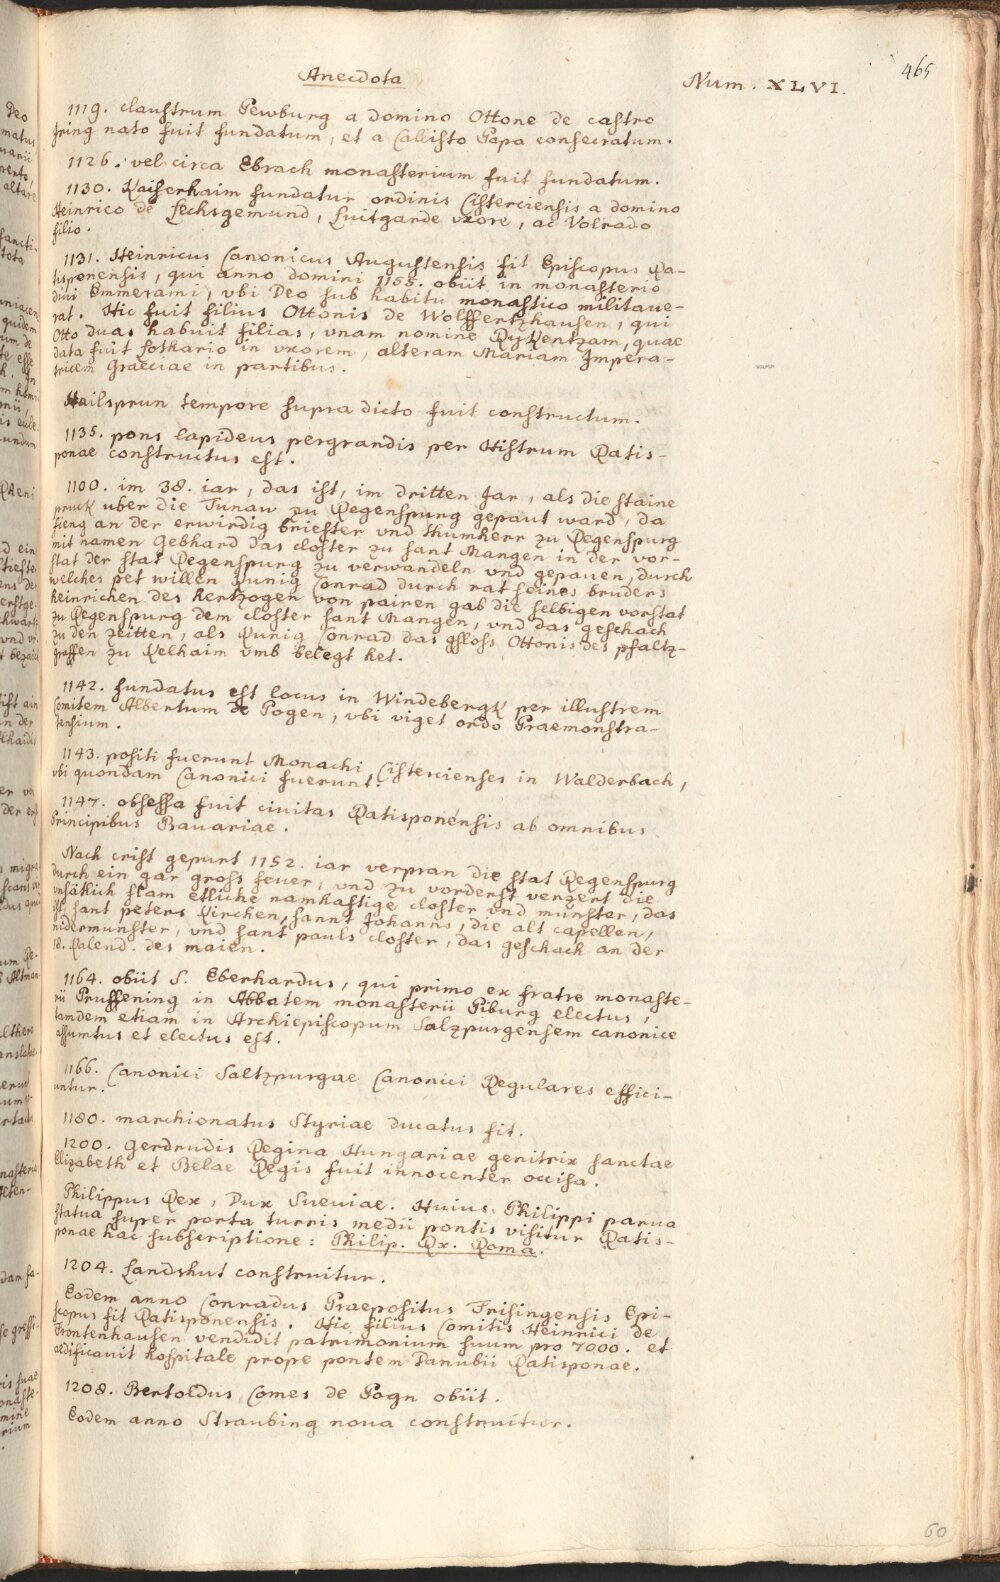 Anecdota
Num. XLVI.
465
1119. claustrum Pewburg a domino Ottone de castro
Iring nato fuit fundatum, et a Callisto Papa consecratum.
1126. vel circa Ebrach monasterium fuit fundatum.
1130. Kaiserhaim fundatur ordinis Cisterciensis a domino
Heinrico de Lechsgemund, Luitgarde vxore, ac Volrado
filio.
1131. Heinricus Canonicus Augustensis fit Episcopus Ra-
tisponensis, qui anno domini 1155. obiit in monasterio
diui Emmerami, vbi Deo sub habitu monastico militaue-
rat. Hic fuit filius Ottonis de Wolffertzhausen, qui
Otto duas habuit filias, vnam nomine RyKentzam, quae
data fuit Lotkario in vxorem, alteram Mariam Impera-
tricem Graeciae in partibus.
Hailsprun tempore supra dicto fuit constructum.
1135. pons lapideus pergrandis per Histrum Ratis-
ponae constructus est.
1100. im 38. iar, das ist, im dritten Jar, als die staine
pruck uber die Tunaw zu Regenspurg gepaut ward, da
fieng an der erwirdig briester vnd thumherr zu Regenspurg
mit namen Gebhard das closter zu sant Mangen in der vor-
stat der stat Regenspurg zu verwandeln vnd gepauen, durch
welches pet willen Kunig Conrad durch rat seines bruders
heinrichen des hertzogen von pairen gab die selbigen vorstat
zu Regenspurg dem closter sant Mangen, vnd das geschach
zu den zeitten, als Kunig Conrad das gsloss Ottonis des pfaltz-
graffen zu Kelhaim vmb belegt het.
1142. fundatus est locus in Windebergk per illustrem
Comitem Albertum de Pogen, vbi viget ordo Praemonstra-
tensium.
1143. positi fuerunt Monachi Cistercienses in Walderbach,
vbi quondam Canonici fuerunt.
1147. obsessa fuit ciuitas Ratisponensis ab omnibus
Principibus Bauariae.
Nach crist gepurt 1152. iar verpran die stat Regenspurg
durch ein gar gross feuer, vnd zu vorderst verzert die
vnsäklich flam etliche namhaftige closter vnd münster, das
ist sant peters Kirchen, sannt Johanns, die alt capellen,
nidermunster, vnd sant pauls closter, das geschach an der
18. Kalend. des maien.
1164. obiit S. Eberhardus, qui primo ex fratre monaste-
rii Pruffening in Abbatem monasterii Piburg electus,
tamdem etiam in Archiepiscopum Salzpurgensem canonice
assumtus et electus est.
1166. Canonici Saltzpurgae Canonici Regulares effici-
untur.
1180. marchionatus Styriae ducatus fit.
1200. Gerdrudis Regina Hungariae genitrix sanctae
Elizabeth et Belae Regis fuit innocenter occisa.
Philippus Rex, Dux Sueuiae. Huius Philippi parua
statua super porta turris medii pontis visitur Ratis-
ponae hac subscriptione: Philip. Rx. Roma.
1204. Landshut construitur.
Eodem anno Conradus Praepositus Frisingensis Epi-
scopus fit Ratisponensis. Hic filius Comitis Heinrici de
Frontenhausen vendidit patrimonium suum pro 7000. et
aedificauit hospitale prope pontem Danubii Ratisponae.
1208. Bertoldus Comes de Pogn obiit.
Eodem anno Straubing noua construitur.
60